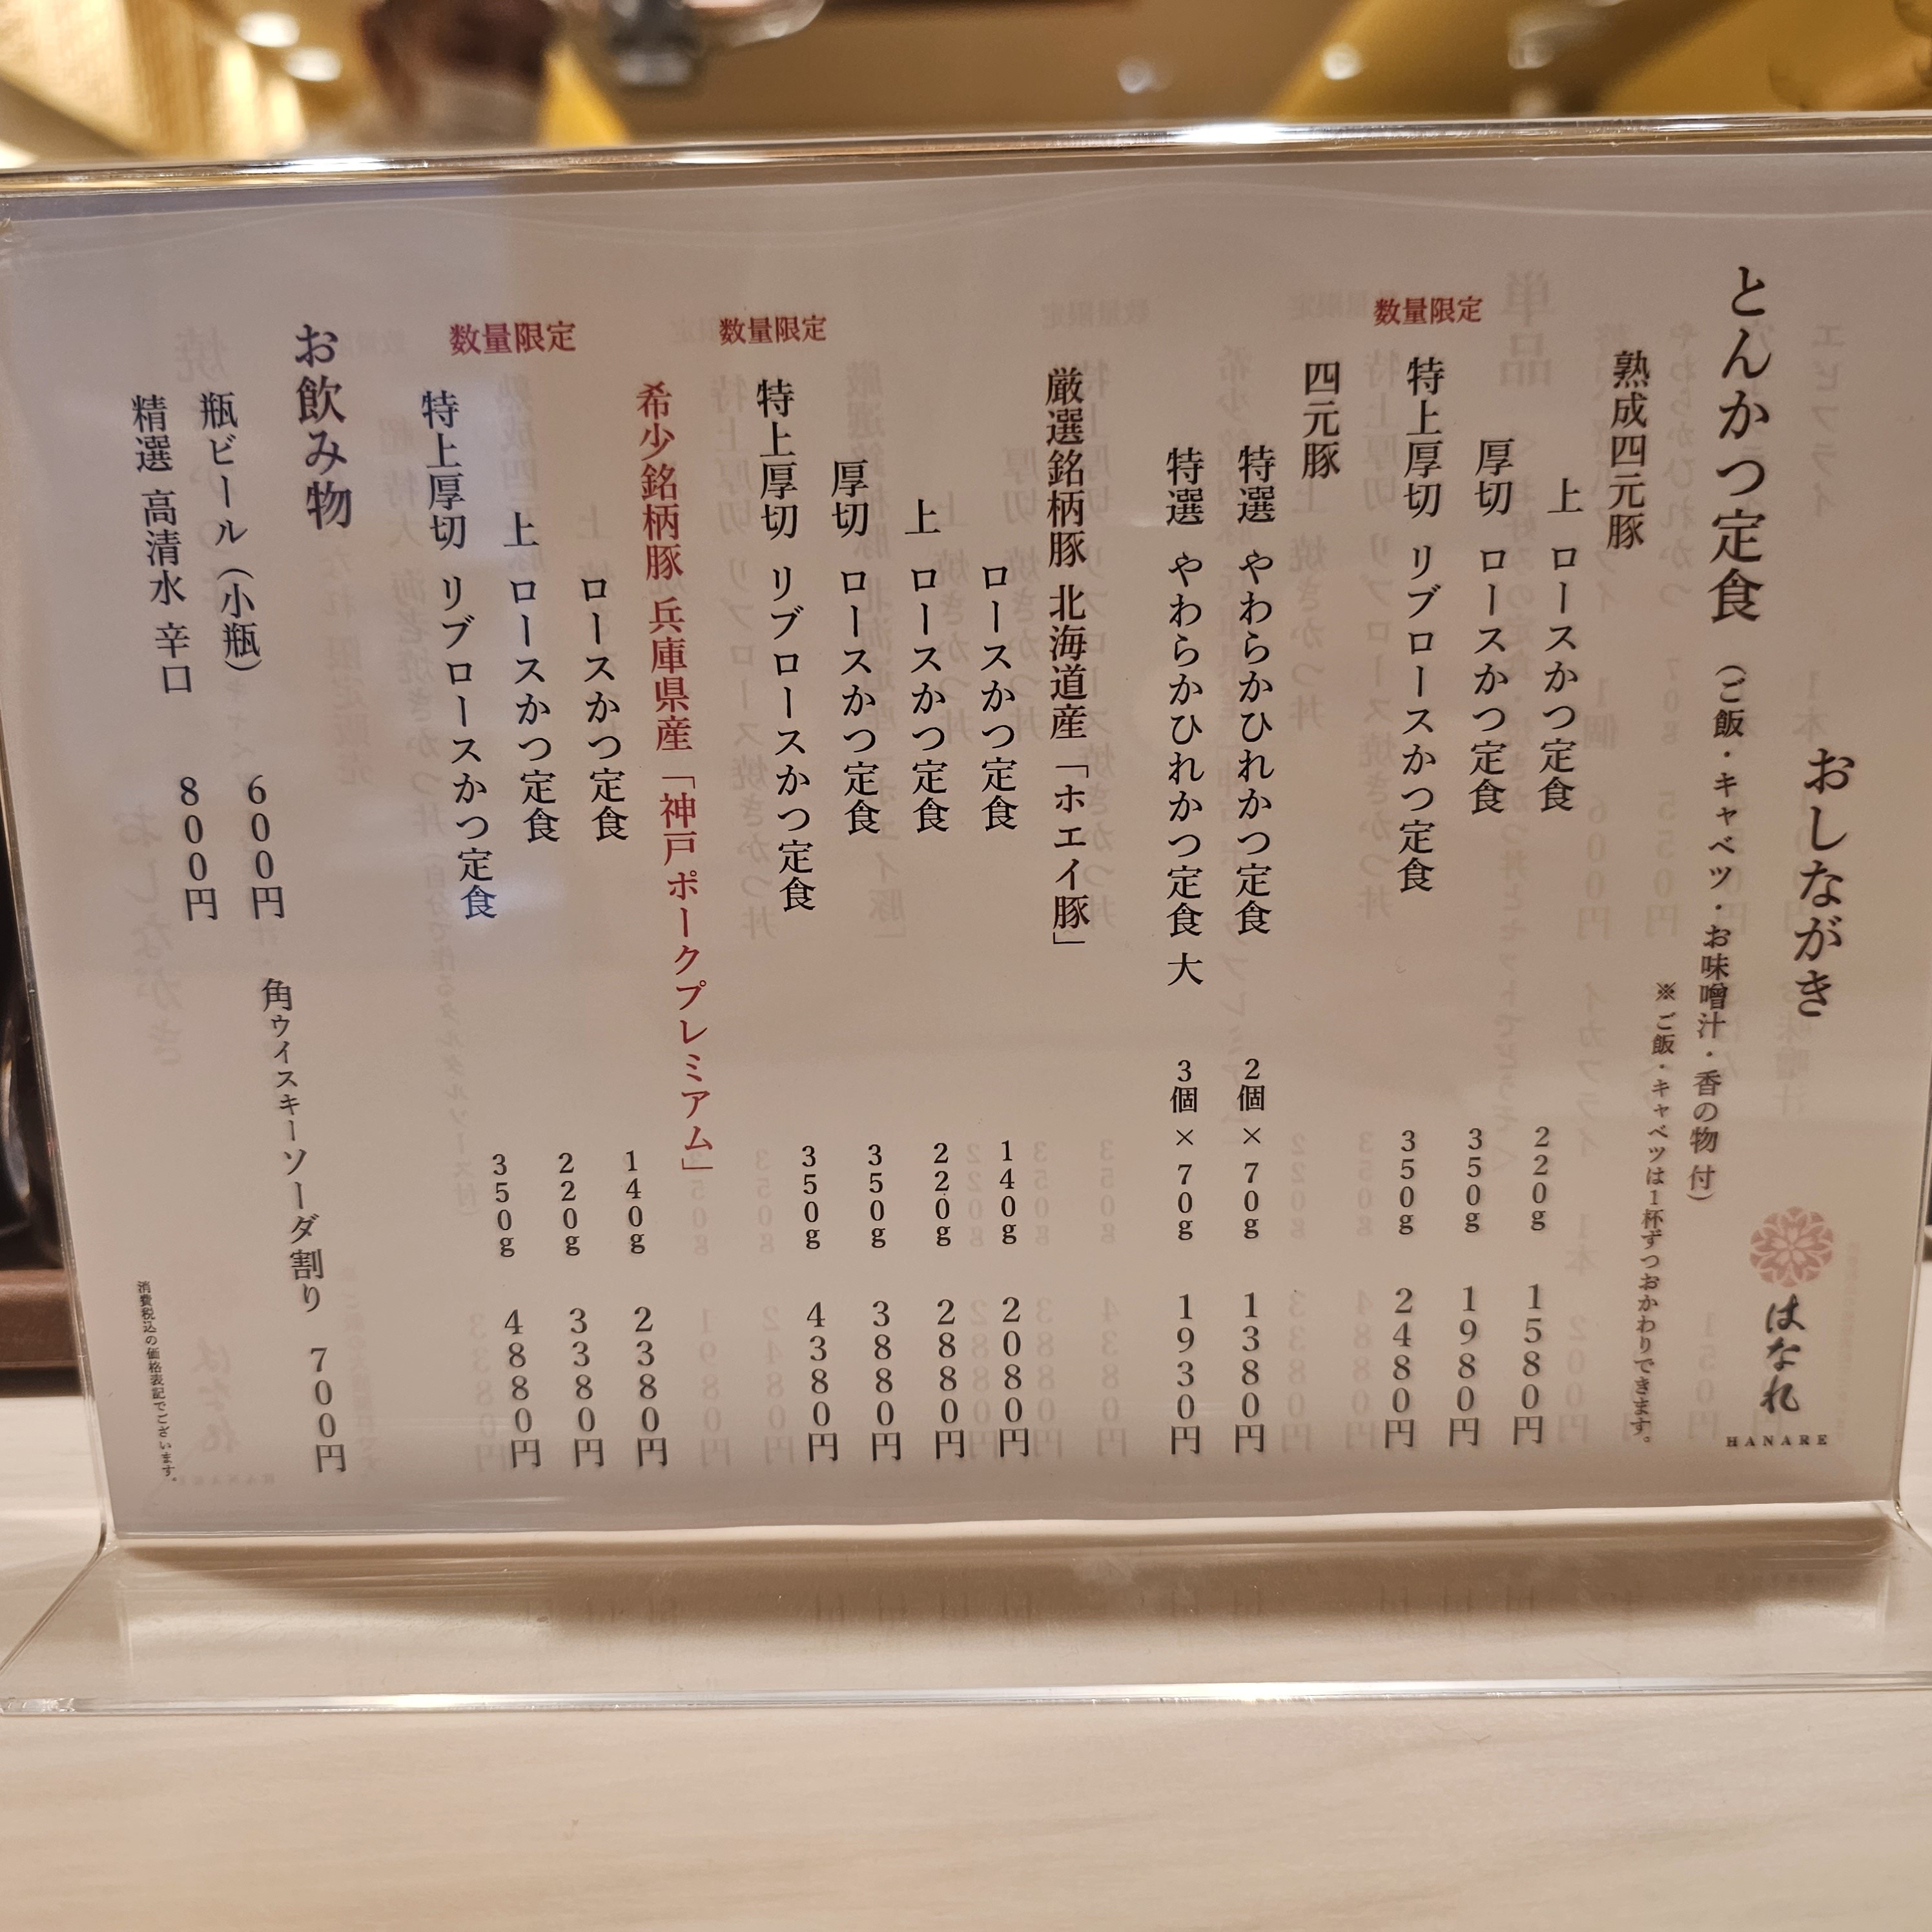 おしながき
はなれ
HANARE
とんかつ定食 (ご飯・キャベツ・お味噌汁・香の物 付)
※ご飯・キャベツは1杯ずつおかわりできます。
熟成四元豚
上 ロースかつ定食 220g 1580円
厚切 ロースかつ定食 350g 1980円
数量限定
特上厚切 リブロースかつ定食 350g 2480円
四元豚
特選 やわらかひれかつ定食 2個×70g 1380円
特選 やわらかひれかつ定食 大 3個×70g 1930円
厳選銘柄豚 北海道産「ホエイ豚」
ロースかつ定食 140g 2080円
上 ロースかつ定食 220g 2880円
厚切 ロースかつ定食 350g 3880円
数量限定
特上厚切 リブロースかつ定食 350g 4380円
希少銘柄豚 兵庫県産「神戸ポークプレミアム」
ロースかつ定食 140g 2380円
上 ロースかつ定食 220g 3380円
数量限定
特上厚切 リブロースかつ定食 350g 4880円
お飲み物
瓶ビール(小瓶) 600円
精選 高清水 辛口 800円
角ウイスキーソーダ割り 700円
消費税込の価格表記でございます。